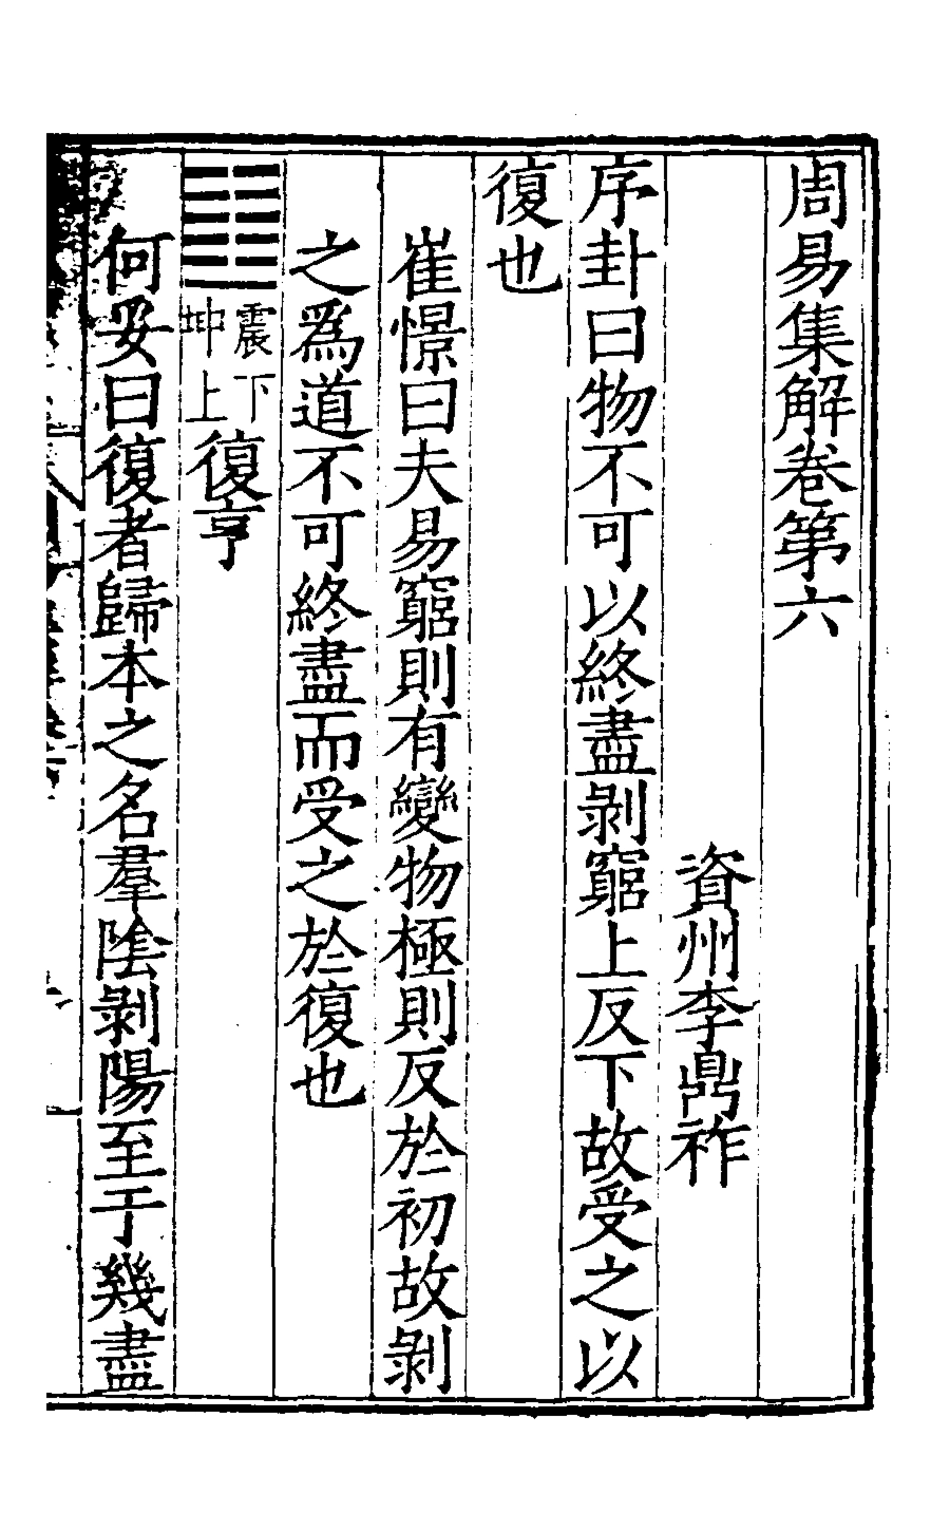 周易集解卷第六
資州李鼎祚
序卦曰物不可以終盡剥窮上反下故受之以
復也
崔憬曰夫易窮則有變物極則反於初故剥
之爲道不可終盡而受之於復也
䷗震下坤上復亨
何妥曰復者歸本之名羣陰剥陽至于幾盡